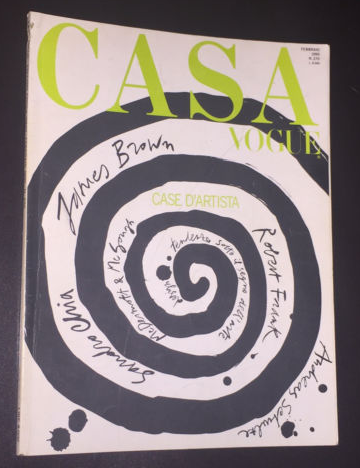 CASA
VOGUE
FEBBRAIO
James Brown
CASE D'ARTISTA
Robert Frank
McDermott & McGough
tendenze sotto il segno dell'arte
design
Sandro Chia
Andreas Schulze